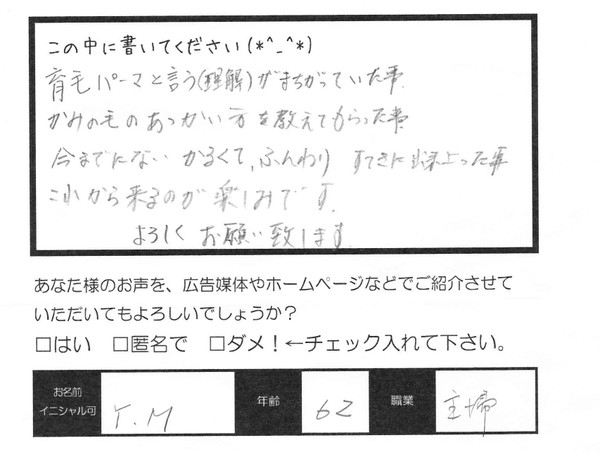 この中に書いてください(*^_^*)
育毛パーマと言う(理解)がまちがっていた事.
かみの毛のあつかい方を教えてもらった事
今までにない かるくて、ふんわり すてきに出来上った事
これから来るのが楽しみです.
よろしく お願い致します.
あなた様のお声を、広告媒体やホームページなどでご紹介させて
いただいてもよろしいでしょうか?
□はい □匿名で □ダメ!←チェック入れて下さい。
お名前 イニシャル可 Y.M 年齢 62 職業 主婦